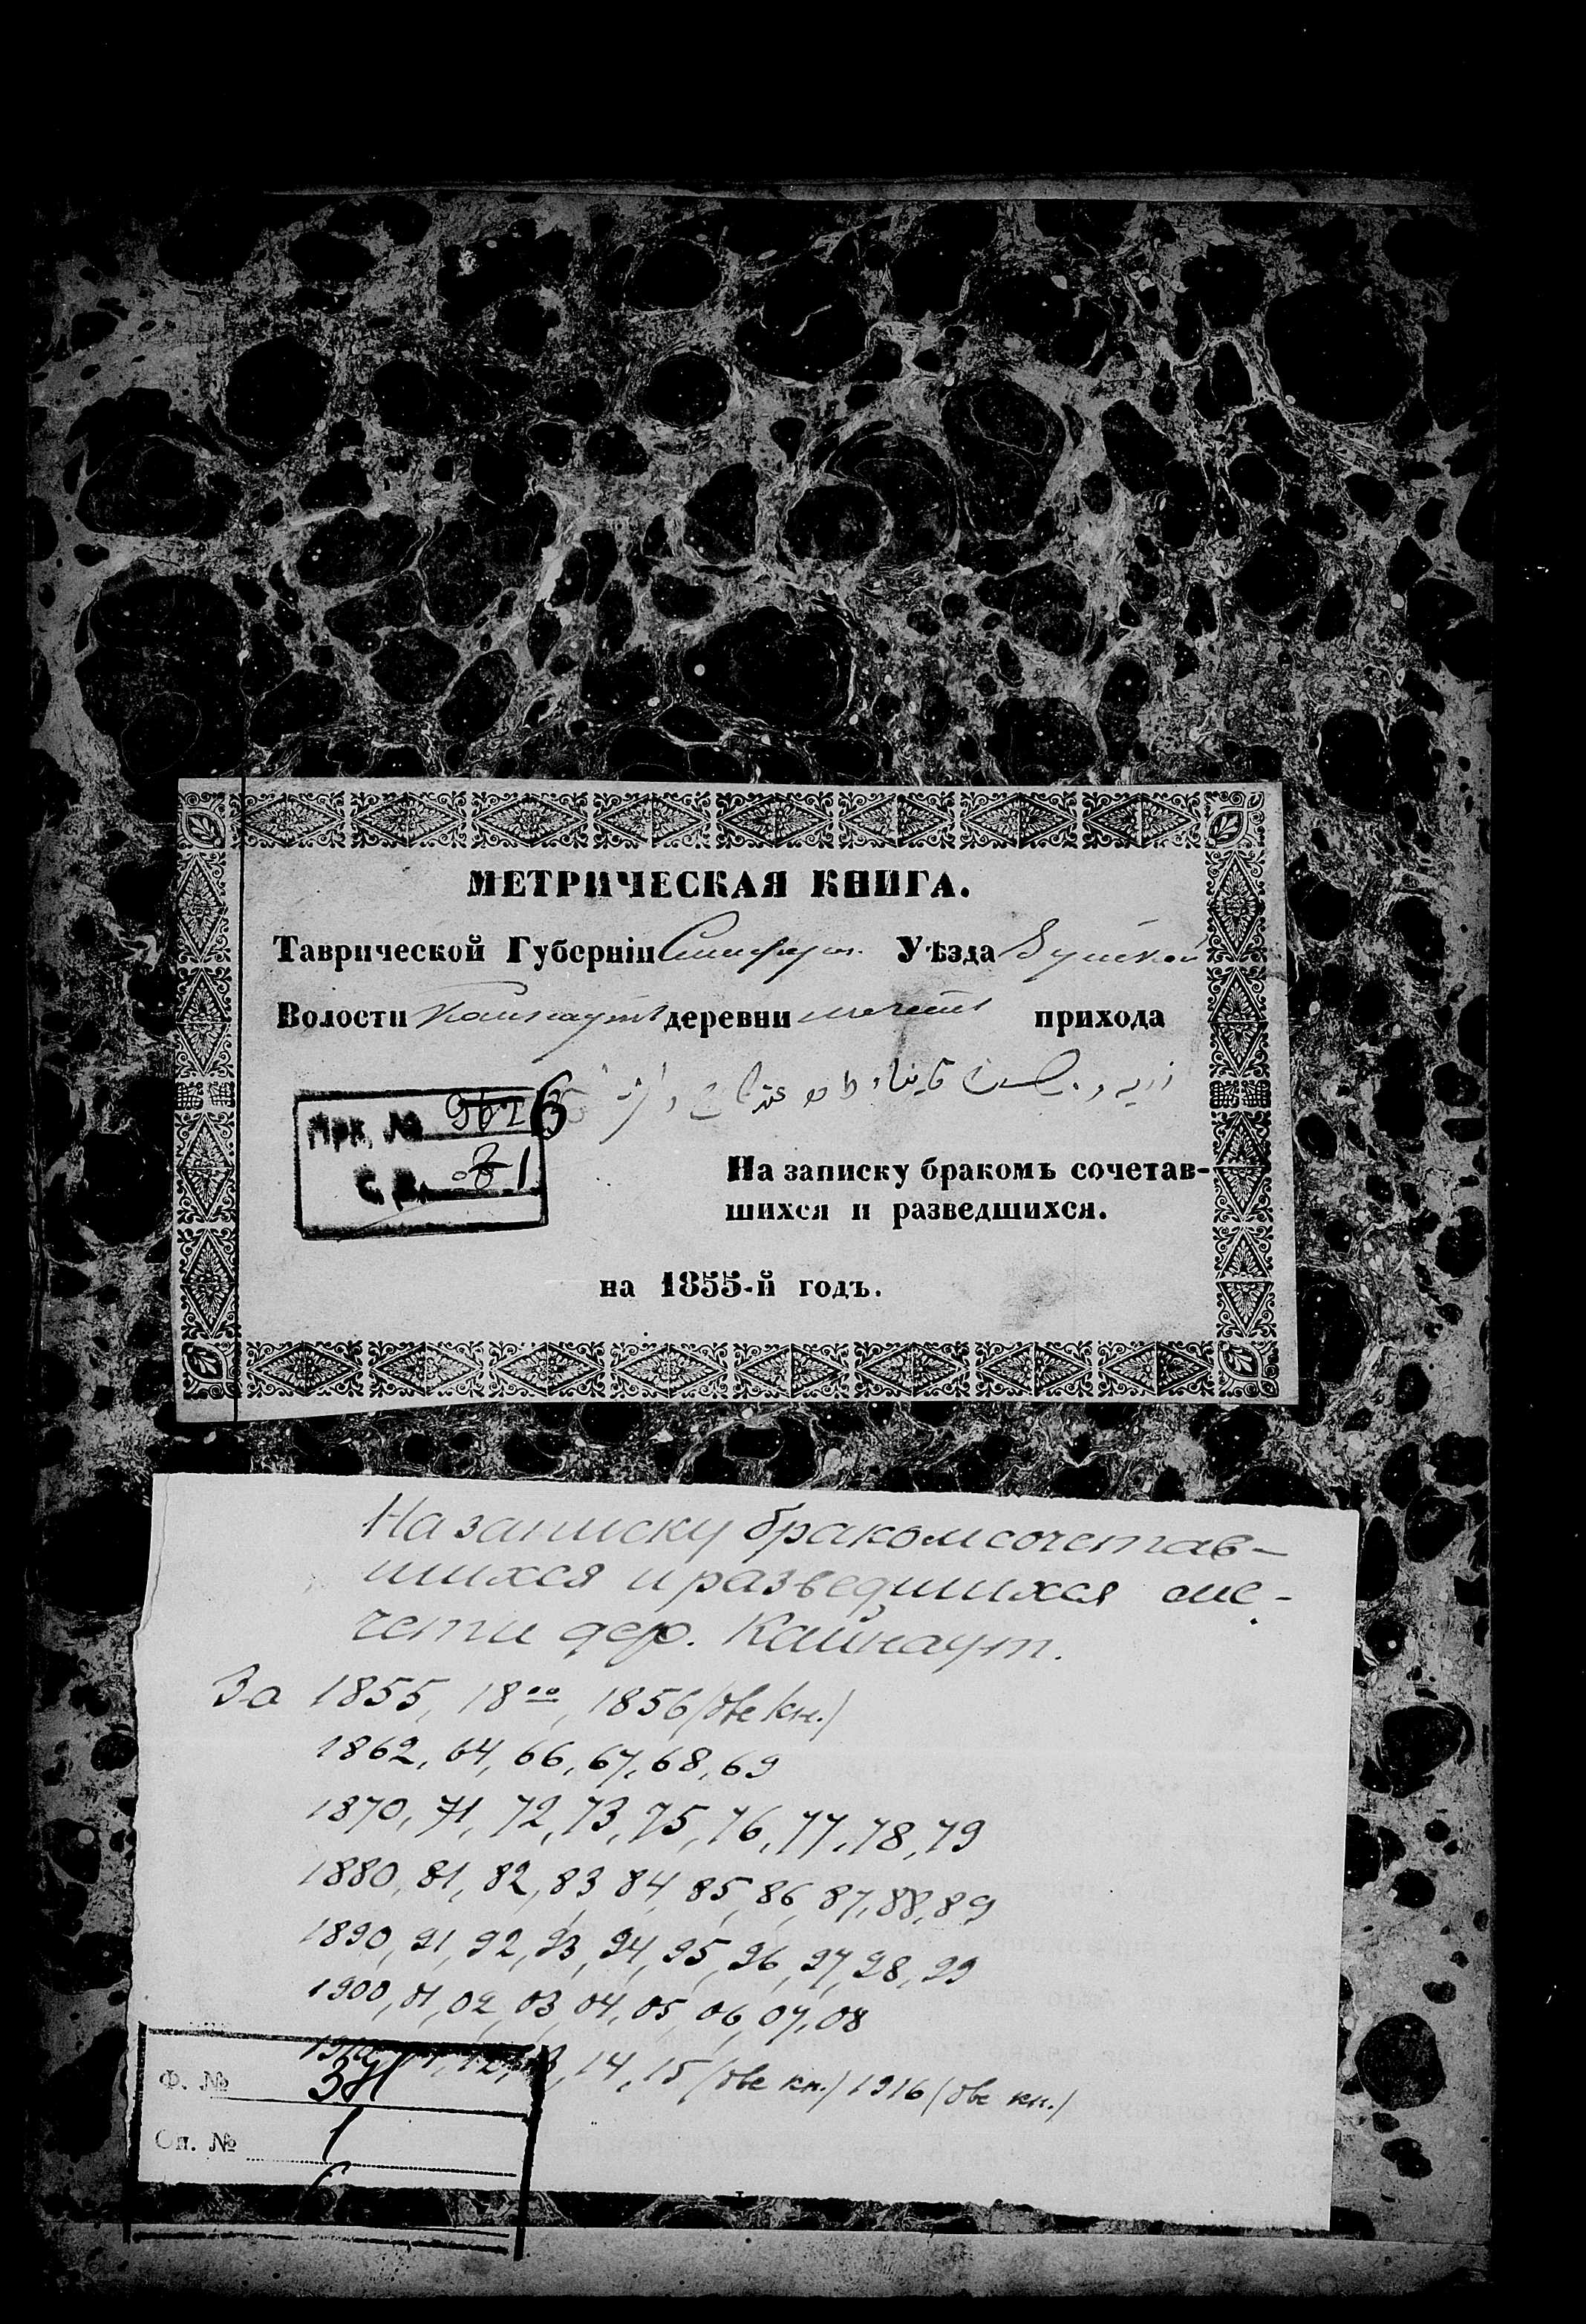 МЕТРИЧЕСКАЯ КНИГА.
Таврической Губерніи Симфероп. Уѣзда
Волости Кайнаутъ деревни мечети прихода
Арх. №
С. В. 1
На записку бракомъ сочетав-
шихся и разведшихся.
на 1855-й годъ.
На записку браком сочетав-
шихся и разведшихся ме-
чети дер. Кайнаут.
За 1855, 18°°, 1856 (две кн.)
1862, 64, 66, 67, 68, 69
1870, 71, 72, 73, 75, 76, 77, 78, 79
1880, 81, 82, 83, 84, 85, 86, 87, 88, 89
1890, 91, 92, 93, 94, 95, 96, 97, 98, 99
1900, 01, 02, 03, 04, 05, 06, 07, 08
14, 15 (две кн.) 1916 (две кн.)
Ф. №
Оп. № 1
6